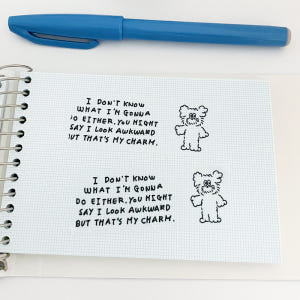 I DON'T KNOW
WHAT I'M GONNA
DO EITHER. YOU MIGHT
SAY I LOOK AWKWARD
BUT THAT'S MY CHARM.
I DON'T KNOW
WHAT I'M GONNA
DO EITHER. YOU MIGHT
SAY I LOOK AWKWARD
BUT THAT'S MY CHARM.